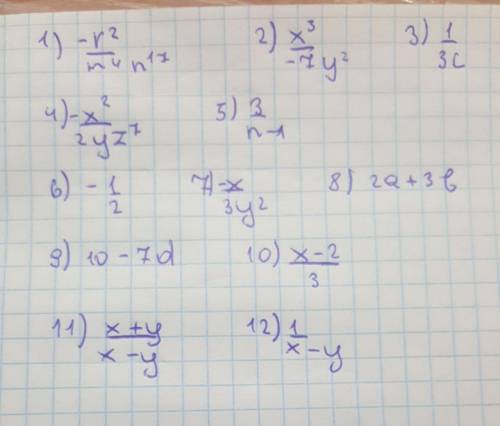 1) -r²/m⁴n¹⁷ 2) x³/-7y² 3) 1/3c
4) -x²/2yz⁷ 5) 3/n-1
6) -1/2 7) -x/3y² 8) 2a+3b
9) 10-7d 10) x-2/3
11) x+y/x-y 12) 1/x-y